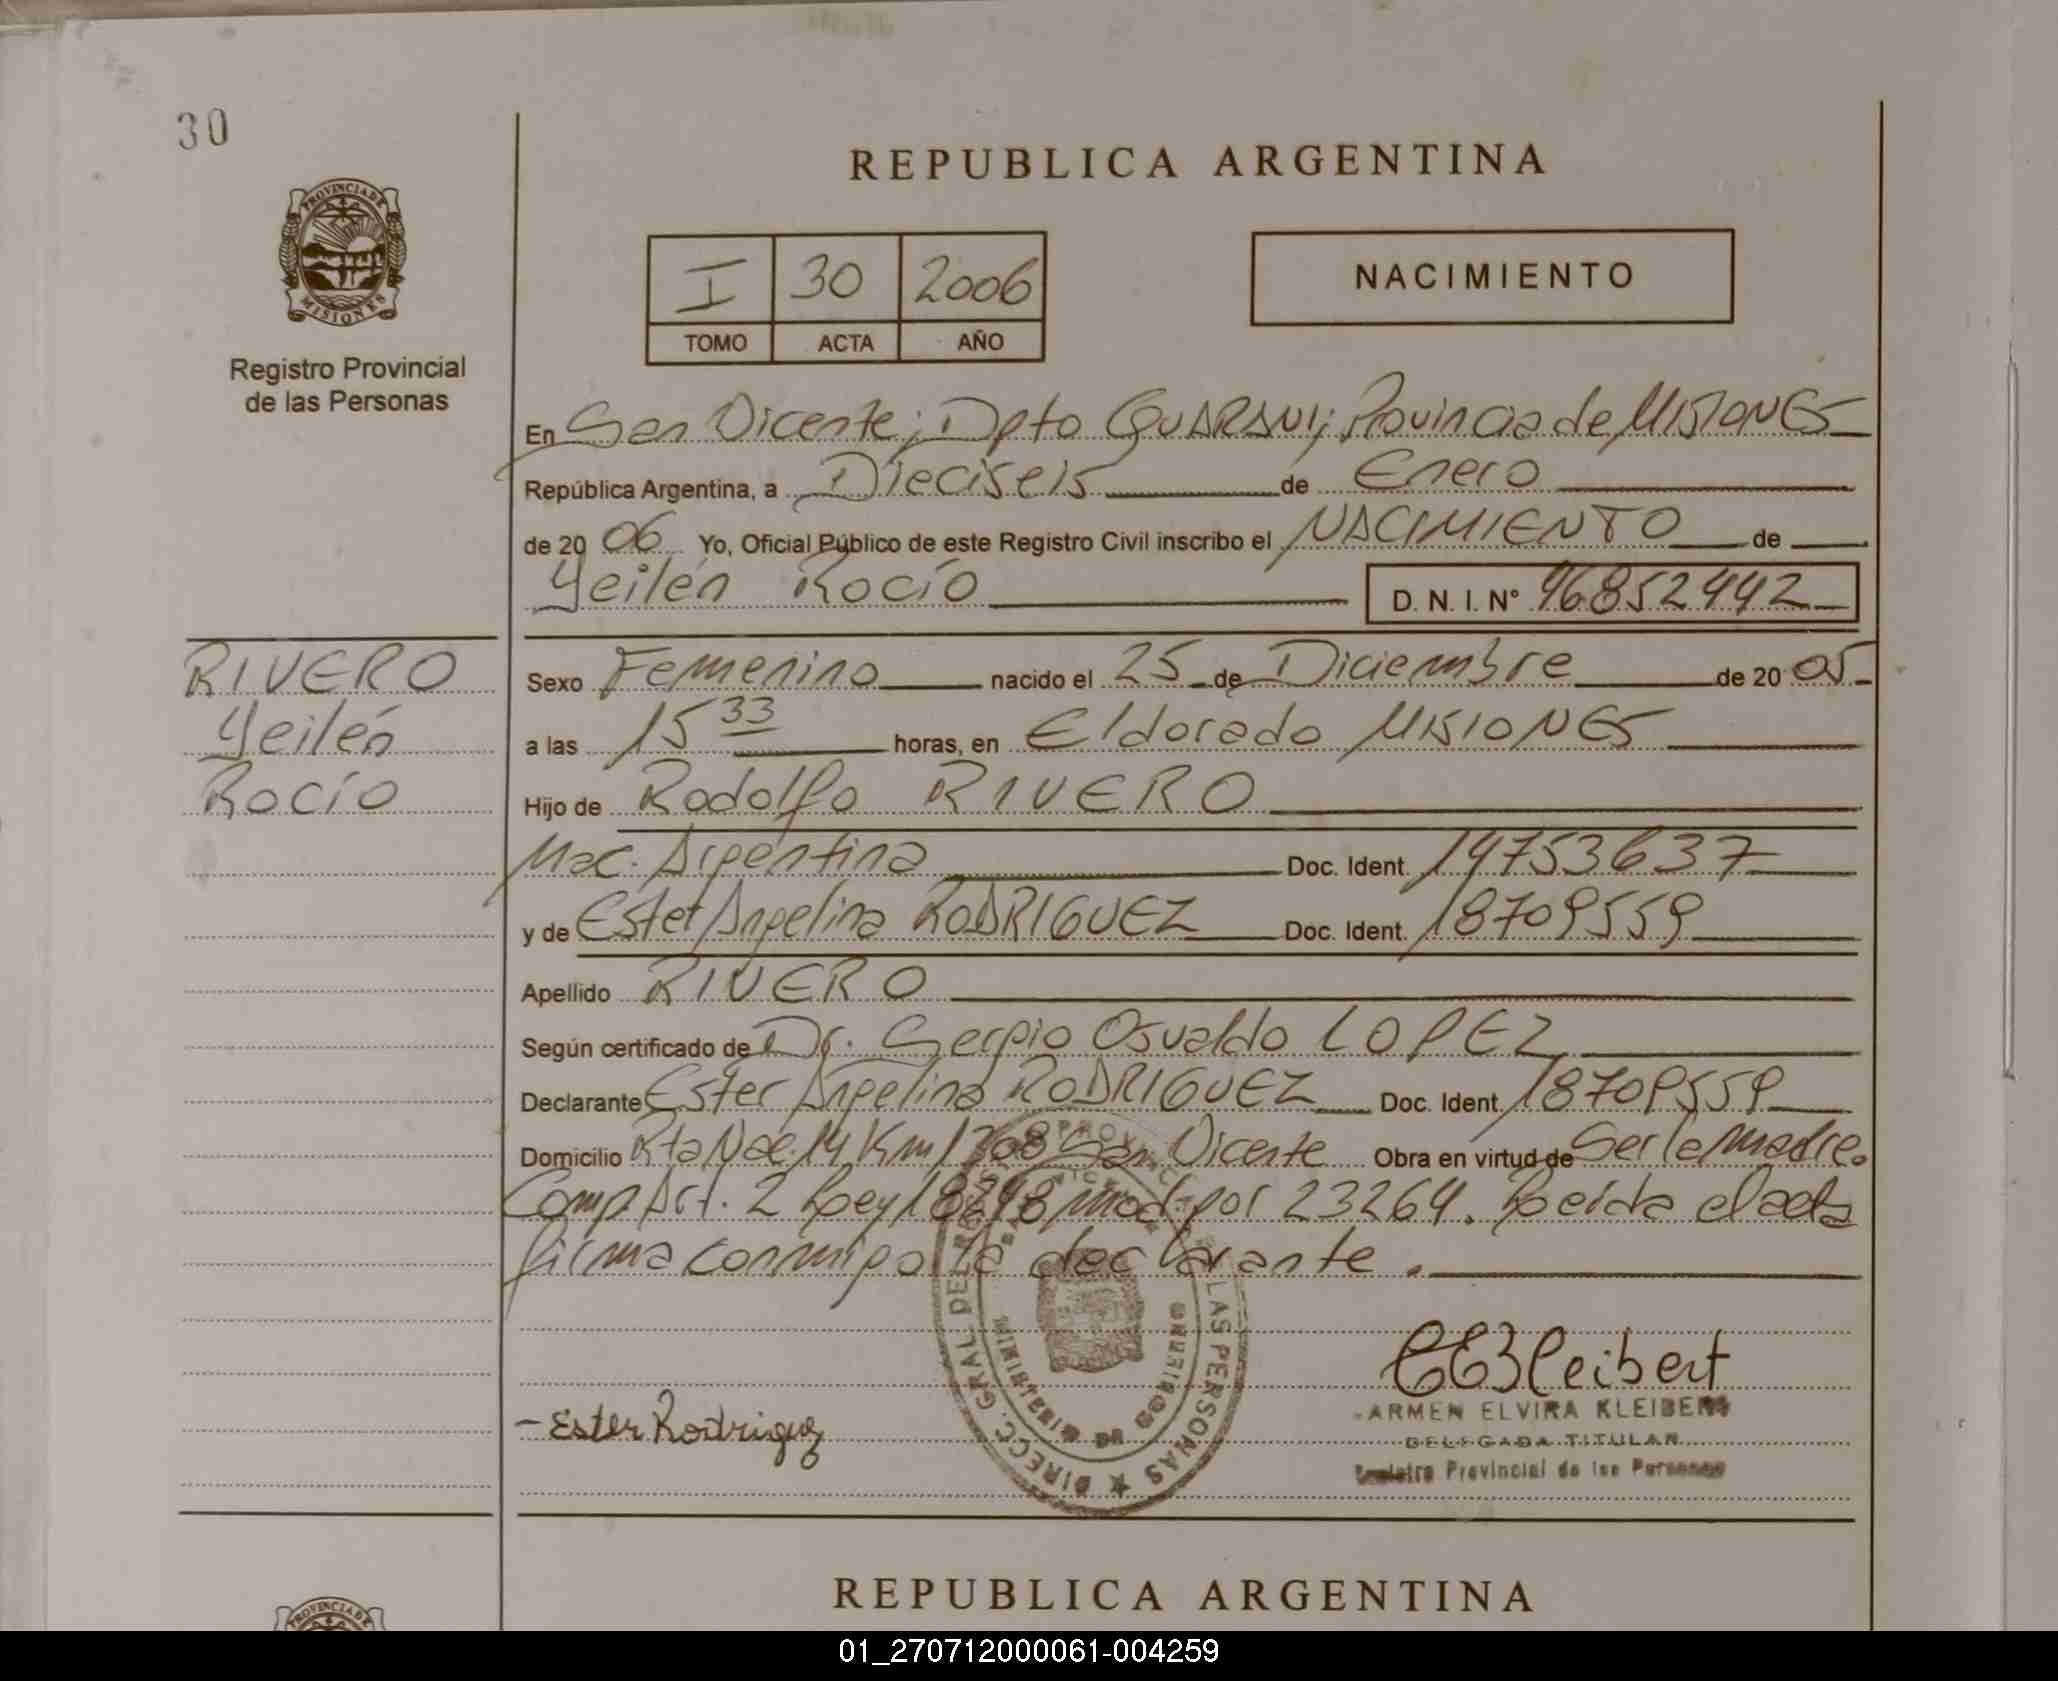 30
REPUBLICA ARGENTINA
PROVINCIA DE
MISIONES
Registro Provincial
de las Personas
I 30 2006
TOMO ACTA AÑO
NACIMIENTO
En San Vicente; Dpto GUARANI; Provincia de MISIONES
República Argentina, a Dieciseis de Enero
de 20 06 Yo, Oficial Público de este Registro Civil inscribo el NACIMIENTO de
Yeilén Rocío D. N. I. N° 46852442
RIVERO
Yeilén
Rocío
Sexo Femenino nacido el 25 de Diciembre de 20 05
a las 15 33 horas, en Eldorado MISIONES
Hijo de Rodolfo RIVERO
Nac. Argentina Doc. Ident. 14753637
y de Ester Angelina RODRIGUEZ Doc. Ident. 18709559
Apellido RIVERO
Según certificado de Dr. Sergio Osvaldo LOPEZ
Declarante Ester Angelina RODRIGUEZ Doc. Ident. 18709559
Domicilio Rta Nac. 14 Km San Vicente Obra en virtud de Ser la madre.
Comp. Art. 2 Ley 18248 mod. por 23264. Leída el acta
firma conmigo la declarante.
DIRECC. GRAL. DEL LAS PERSONAS
MINISTERIO DE GOBIERNO
CEKleibert
-ARMEN ELVIRA KLEIBERT
DELEGADA TITULAR
Registro Provincial de las Personas
- Ester Rodriguez
REPUBLICA ARGENTINA
PROVINCIA DE
01_270712000061-004259